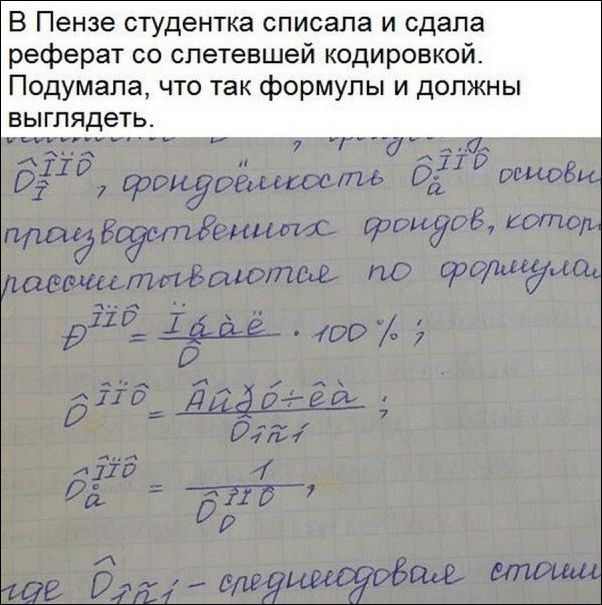 В Пензе студентка списала и сдала
реферат со слетевшей кодировкой.
Подумала, что так формулы и должны
выглядеть.
Ô ÎÏÔ Î , фондоёмкость Ô ÎÏÔ å основн
производственных фондов, котор
рассчитываются по формула
Ð ÎÏÔ = Ïáàë / Ô · 100 % ;
Ô ÎÏÔ = Âûðó÷êà / Ôîñí ;
Ô ÎÏÔ å = 1 / Ô ÎÏÔ О ,
где Ôîñí - среднегодовая стоим